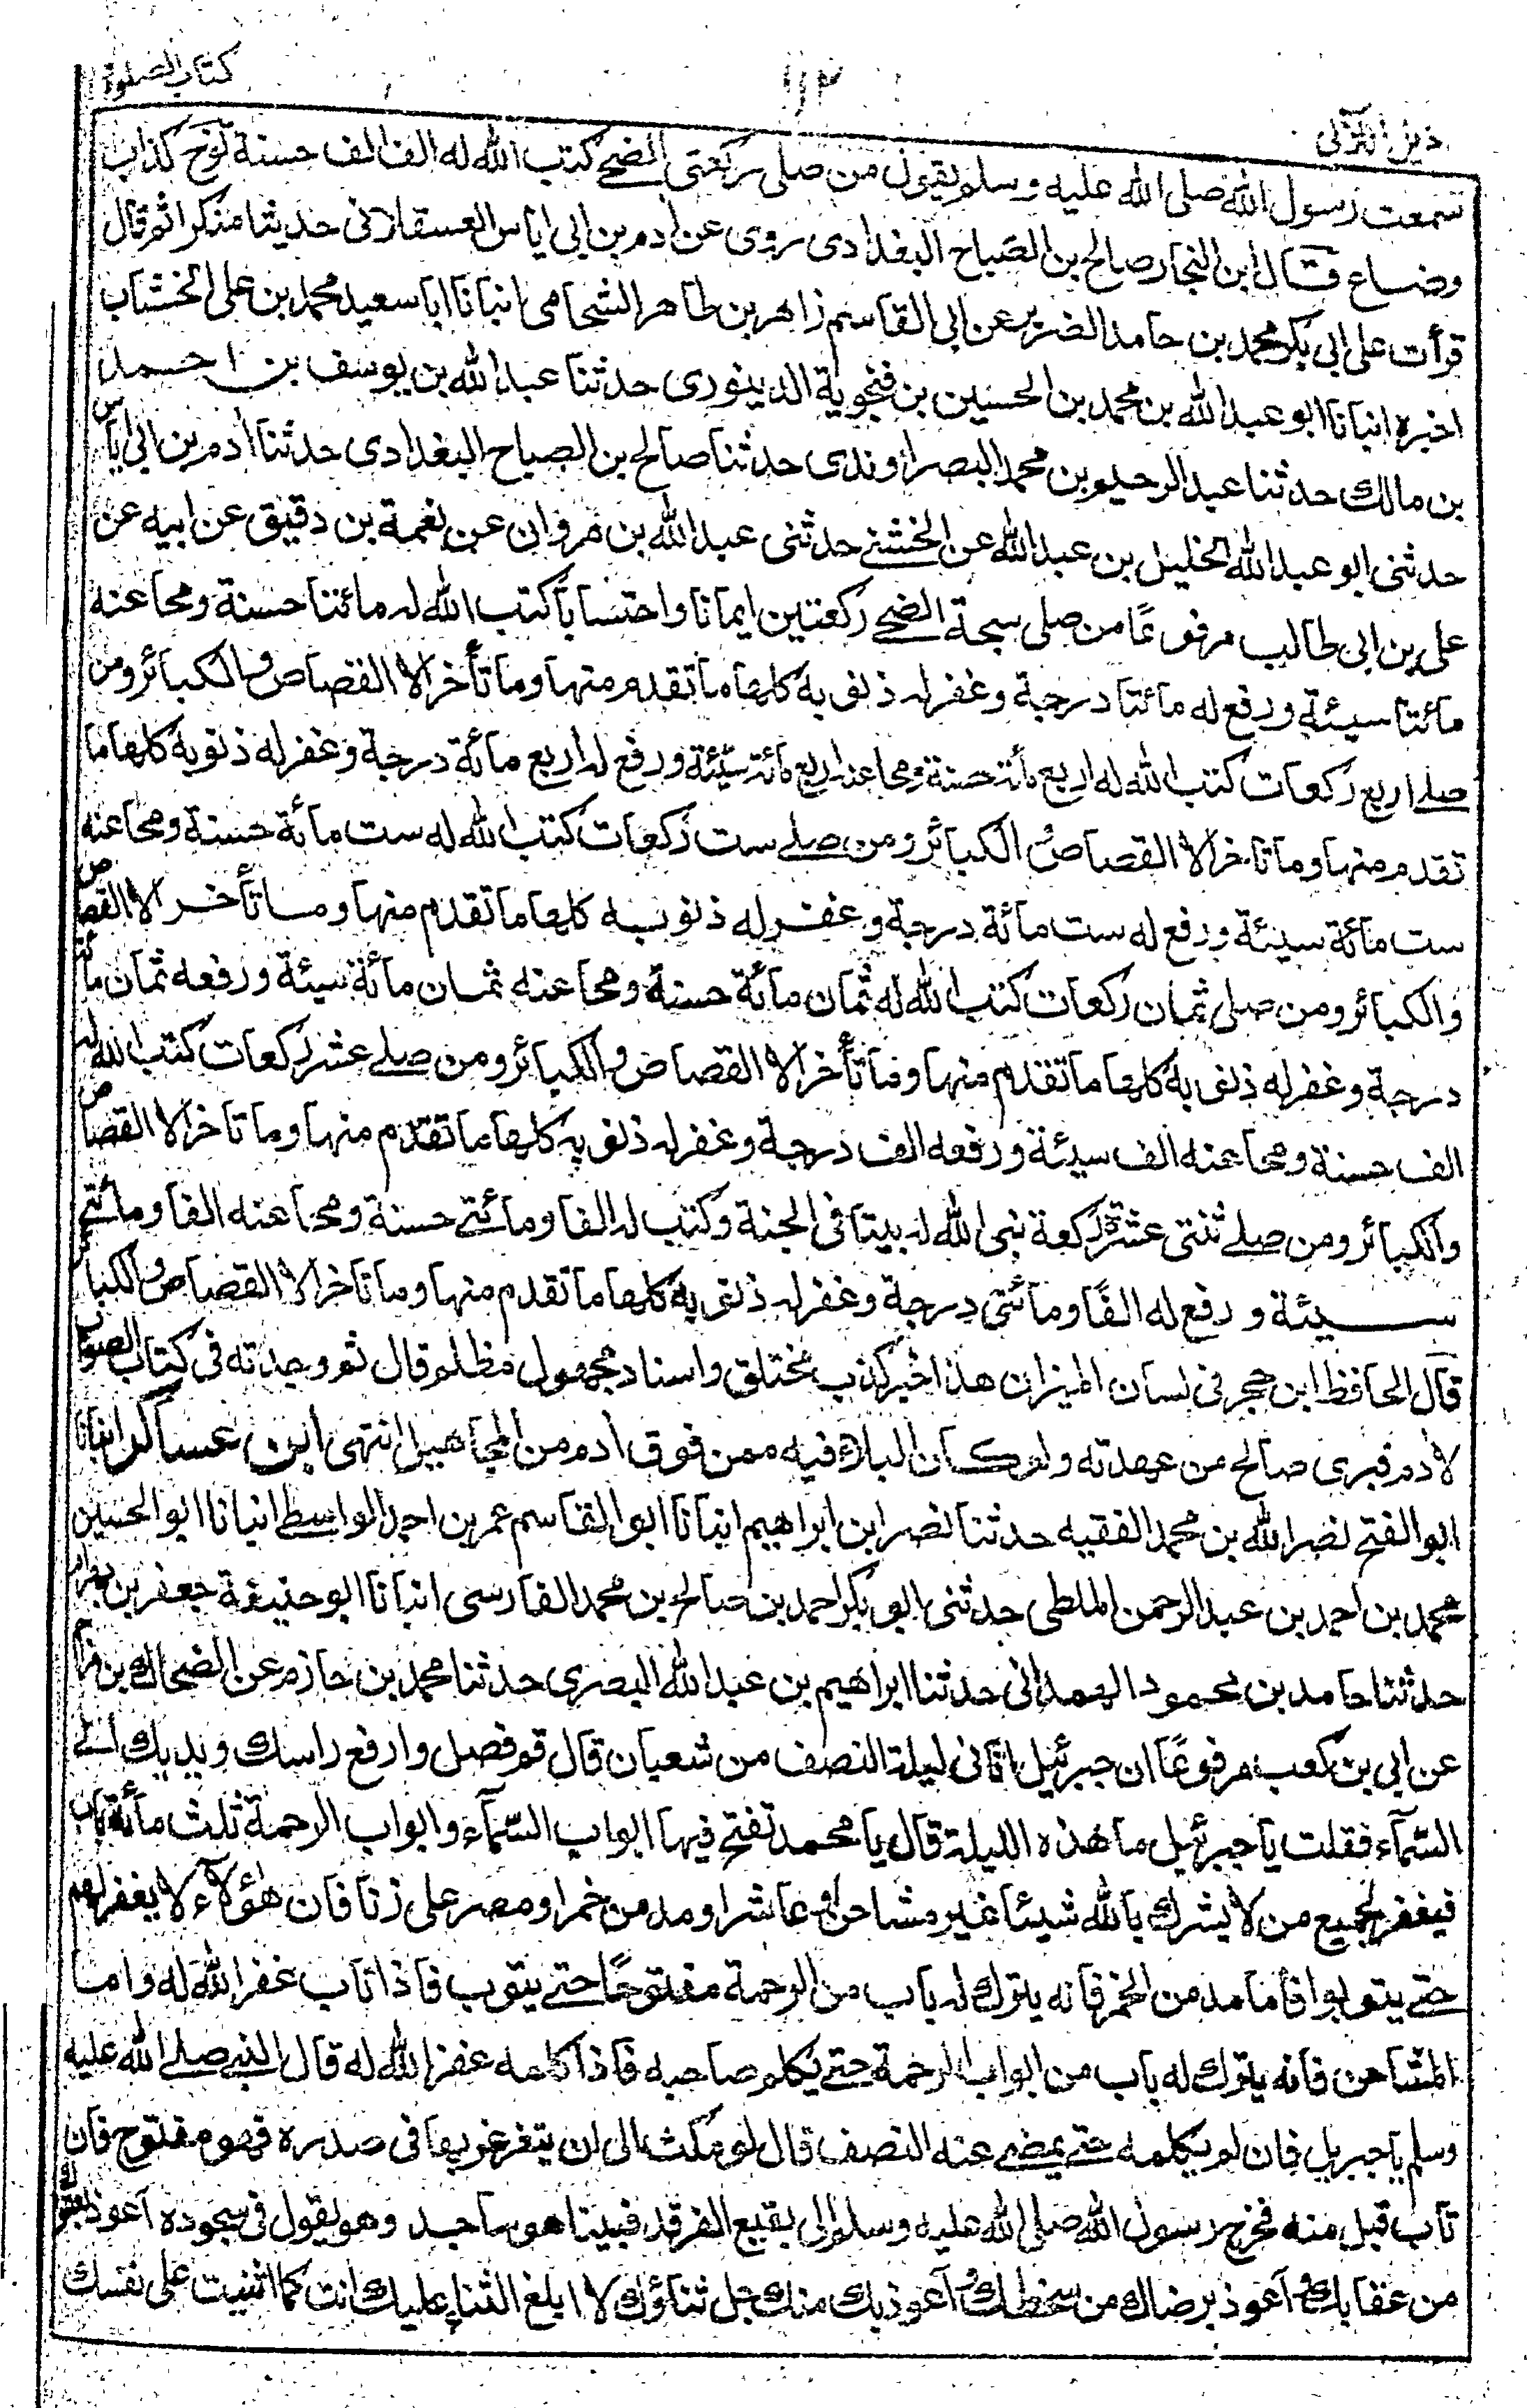 كتاب الصلوة
١١٣
ذيل اللآلي
سمعت رسول الله صلى الله عليه وسلم يقول من صلى ركعتي الضحى كتب الله له الف الف حسنة نوح كذاب
وضاع قال ابن النجار صالح بن الصباح البغدادى روى عن ادم بن ابى اياس العسقلانى حديثا منكرا ثم قال
قرأت على ابى بكر محمد بن حامد الضرير عن ابى القاسم زاهر بن طاهر الشحامى انبانا ابا سعيد محمد بن على الخشاب
اخبره انبانا ابو عبد الله بن محمد بن الحسين بن فنجوية الدينورى حدثنا عبد الله بن يوسف بن احمد
بن مالك حدثنا عبد الرحيم بن محمد البصراوندى حدثنا صالح بن الصباح البغدادى حدثنا ادم بن ابى اياس
حدثنى ابو عبد الله الخليل بن عبد الله عن الخشنى حدثنى عبد الله بن مروان عن نعمة بن دقيق عن ابيه عن
على بن ابى طالب مرفوعًا من صلى سبحة الضحى ركعتين ايمانا واحتسابًا كتب الله له مائتا حسنة ومحا عنه
مائتا سيئة ورفع له مائتا درجة وغفر له ذنوبه كلها ما تقدم منها وما تأخر الا القصاص والكبائر ومن
صلى اربع ركعات كتب الله له اربع مائة حسنة ومحا عنه اربع مائة سيئة ورفع له اربع مائة درجة وغفر له ذنوبه كلها ما
تقدم منها وما تاخر الا القصاص والكبائر ومن صلى ست ركعات كتب الله له ست مائة حسنة ومحا عنه
ست مائة سيئة ورفع له ست مائة درجة وغفر له ذنوبه كلها ما تقدم منها وما تأخر الا القصاص
والكبائر ومن صلى ثمان ركعات كتب الله له ثمان مائة حسنة ومحا عنه ثمان مائة سيئة ورفعه ثمان مائة
درجة وغفر له ذنوبه كلها ما تقدم منها وما تأخر الا القصاص والكبائر ومن صلى عشر ركعات كتب الله له
الف حسنة ومحا عنه الف سيئة ورفعه الف درجة وغفر له ذنوبه كلها ما تقدم منها وما تاخر الا القصاص
والكبائر ومن صلى ثنتى عشرة ركعة بنى الله له بيتا فى الجنة وكتب له الفا ومائتى حسنة ومحا عنه الفا ومائتى
سيئة ورفع له الفًا ومائتى درجة وغفر له ذنوبه كلها ما تقدم منها وما تاخر الا القصاص والكبائر
قال الحافظ ابن حجر فى لسان الميزان هذا خبر كذب مختلق واسناد مجهول مظلم قال ثم وجدته فى كتاب الصواب
لادم فبرى صالح من عهدته ولم كان البلاء فيه ممن فوق ادم من المجاهيل انتهى ابن عساكر انبانا
ابو الفتح نصر الله بن محمد الفقيه حدثنا نصر ابن ابراهيم انبانا ابو القاسم عمر بن احمد الواسطى انبانا ابو الحسين
محمد بن احمد بن عبد الرحمن الملطى حدثنى ابو بكر احمد بن صالح بن محمد الفارسى انبانا ابو حنيفة جعفر بن بهرام
حدثنا حامد بن محمود الهمدانى حدثنا ابراهيم بن عبد الله البصرى حدثنا محمد بن حازم عن الضحاك بن مزاحم
عن ابى بن كعب مرفوعًا ان جبرئيل اتانى ليلة النصف من شعبان قال قم فصل وارفع راسك ويديك الى
السمآء فقلت يا جبرئيل ما هذه الليلة قال يا محمد تفتح فيها ابواب السمآء وابواب الرحمة ثلث مائة باب
فيغفر لجميع من لا يشرك بالله شيئا غير مشاحن او عاشر او مدمن خمر او مصر على زنا فان هؤلآء لا يغفر لهم
حتى يتوبوا فأما مدمن الخمر فانه يترك له باب من الرحمة مفتوحًا حتى يتوب فاذا تاب غفر الله له واما
المشاحن فانه يترك له باب من ابواب الرحمة حتى يكلم صاحبه فاذا كلمه غفر الله له قال النبى صلى الله عليه
وسلم يا جبريل فان لم يكلمه حتى يمضى عنه النصف قال لو مكث الى ان يتغرغر بها فى صدره فهو مفتوح فان
تاب قبل منه فخرج رسول الله صلى الله عليه وسلم الى بقيع الغرقد فبينا هو ساجد وهو يقول فى سجوده اعوذ بعفوك
من عقابك و اعوذ برضاك من سخطك و اعوذ بك منك جل ثناؤك لا ابلغ الثناء عليك انت كما اثنيت على نفسك